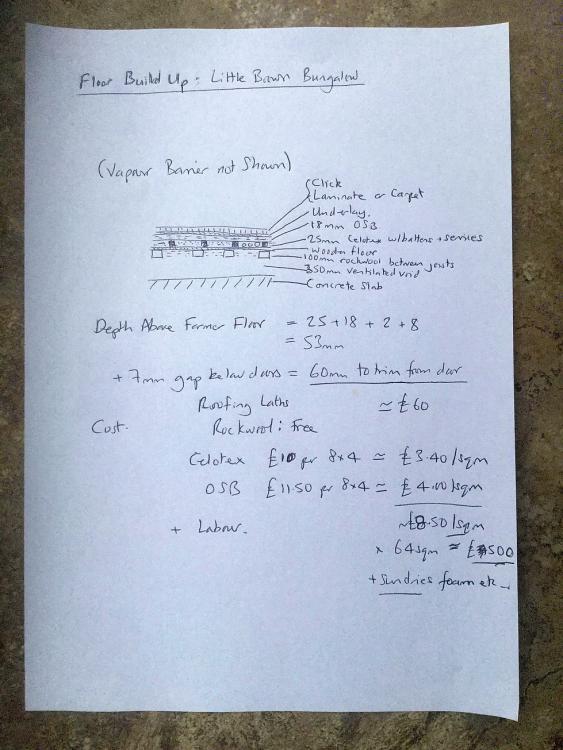 Floor Build Up : Little Brown Bungalow
(Vapour Barrier not Shown)
Click
Laminate or Carpet
Underlay.
18mm OSB
25mm Celotex w/battens + services
Wooden floor
100mm rockwool between joists
350mm ventilated void
Concrete Slab
Depth Above Former Floor = 25 + 18 + 2 + 8
= 53mm
+ 7mm gap below doors = 60mm to trim from door
Roofing Laths ≃ £60
Cost. Rockwool : Free
Celotex £10 per 8x4 ≃ £3.40/sqm
OSB £11.50 per 8x4 ≃ £4.00/sqm
~£8.50/sqm
+ Labour.
x 64sqm ≃ £500
+ Sundries foam etc